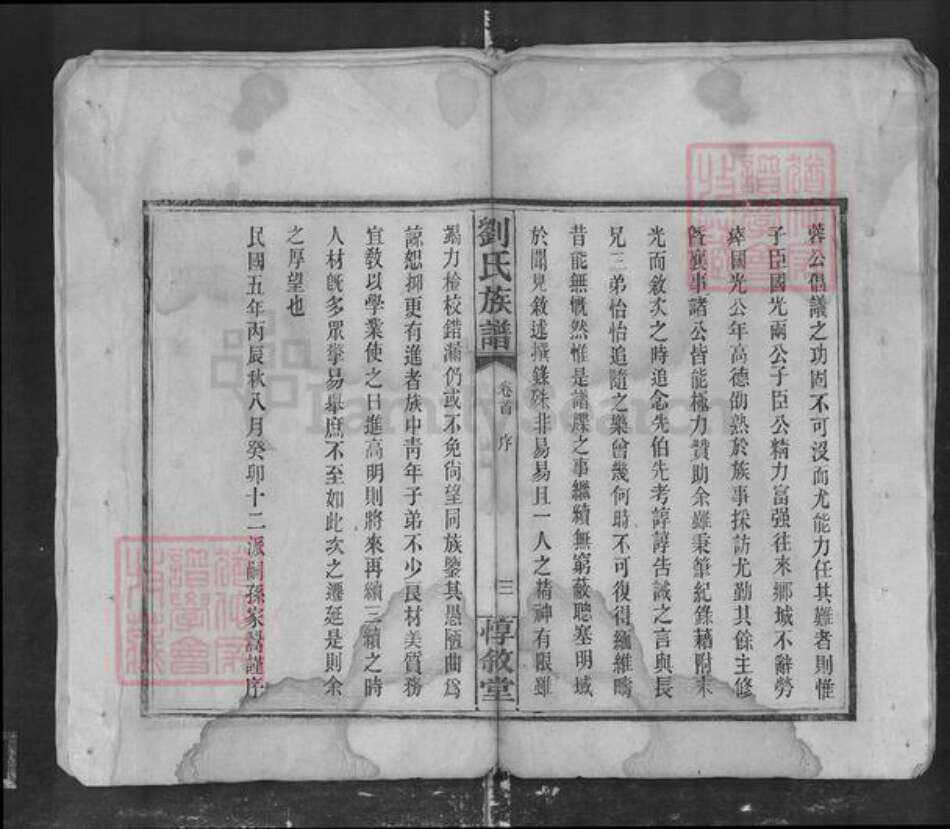 蓉公倡議之功固不可沒而尤能力任其難者則惟
子臣國光兩公子臣公精力富强往來鄉城不辭勞
瘁國光公年高德劭熱於族事採訪尤勤其餘主修
曁襄事諸公皆能極力贊助余雖秉筆紀錄藉附末
光而敘次之時追念先伯先考諄諄告誡之言與長
兄三弟怡怡追隨之樂曾幾何時不可復得緬維疇
昔能無慨然惟是譜牒之事繼續無窮蔽聰塞明域
於聞見敘述撰錄殊非易易且一人之精神有限雖
劉氏族譜 卷首 序 三 惇敘堂
竭力檢校錯漏仍或不免尙望同族鑒其愚陋曲爲
諒恕抑更有進者族中靑年子弟不少良材美質務
宜敎以學業使之日進高明則將來再續三續之時
人材旣多眾擎易舉庶不至如此次之遷延是則余
之厚望也
民國五年丙辰秋八月癸卯十二派嗣孫家謹序
familysearch